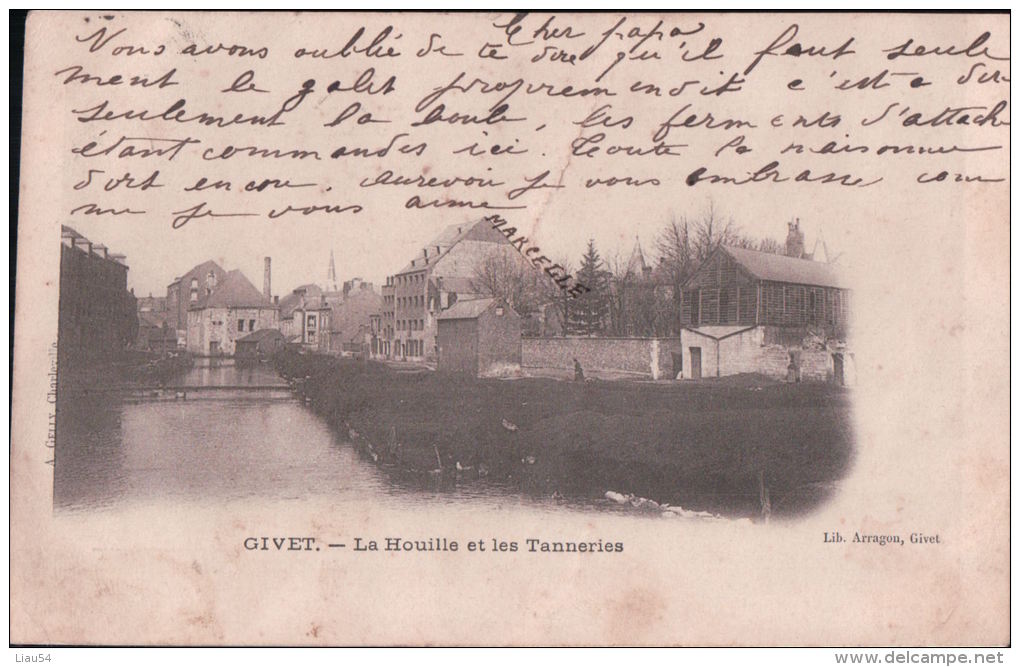 Cher papa
Nous avons oublié de te dire qu'il faut seule
ment le galet proprement dit c'est a dire
seulement la boule, les ferments d'attache
étant commandes ici. Toute la maisonnee
dort encore. aurevoir je vous embrasse come
me je vous aime
MARCELLE
A GELLY, Charleville
GIVET. — La Houille et les Tanneries
Lib. Arragon, Givet
Liau54
www.delcampe.net